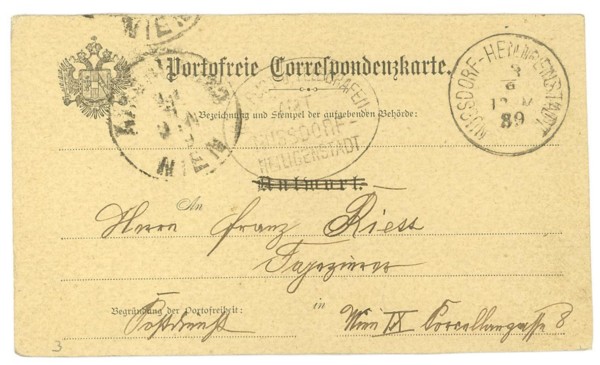 WIEN
Portofreie Correspondenzkarte.
NUSSDORF-HEILIGENSTADT
3
6
89
Bezeichnung und Stempel der aufgebenden Behörde:
NUSSDORF-
HEILIGENSTADT
WIEN
Antwort.
An
Herrn Franz Riess
Tapezierer
Begründung der Portofreiheit:
in
Postdienst
Wien IX Porcellangasse 8
3